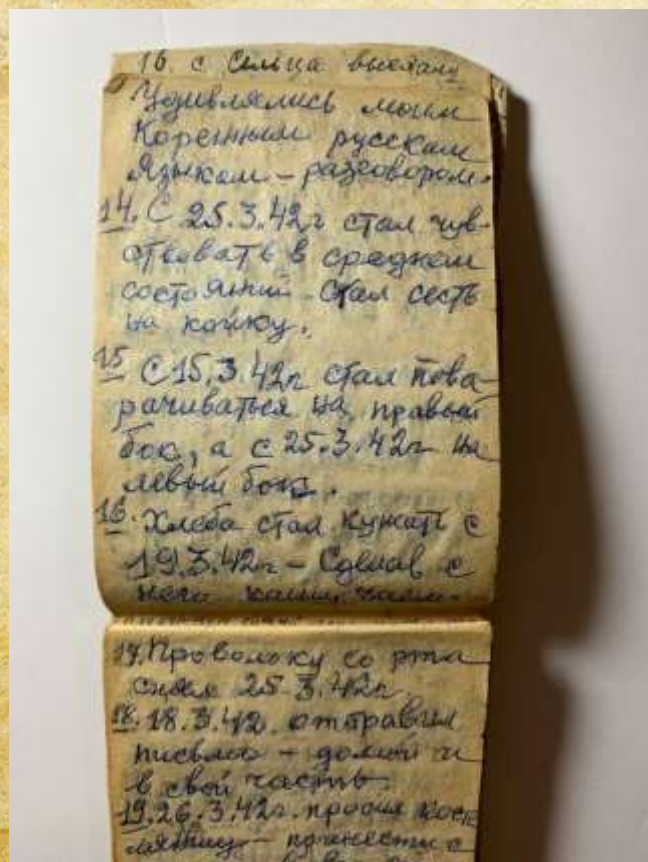 16. с Сельца выехали
Удивлялись моим
Коренным русским
Языком - разговором.
14. С 25.3.42г стал чув-
ствовать в среднем
состоянии. Стал сесть
на койку.
15 С 15.3.42г стал пова-
рачиваться на правый
бок, а с 25.3.42г на
левый бок.
16. Хлеба стал кушать с
19.3.42г - Сделав с
него
17. Проволоку со рта
снял 25.3.42г.
18. 18.3.42 отправил
письмо - домой и
в свой часть.
19. 26.3.42г. просил
принести с